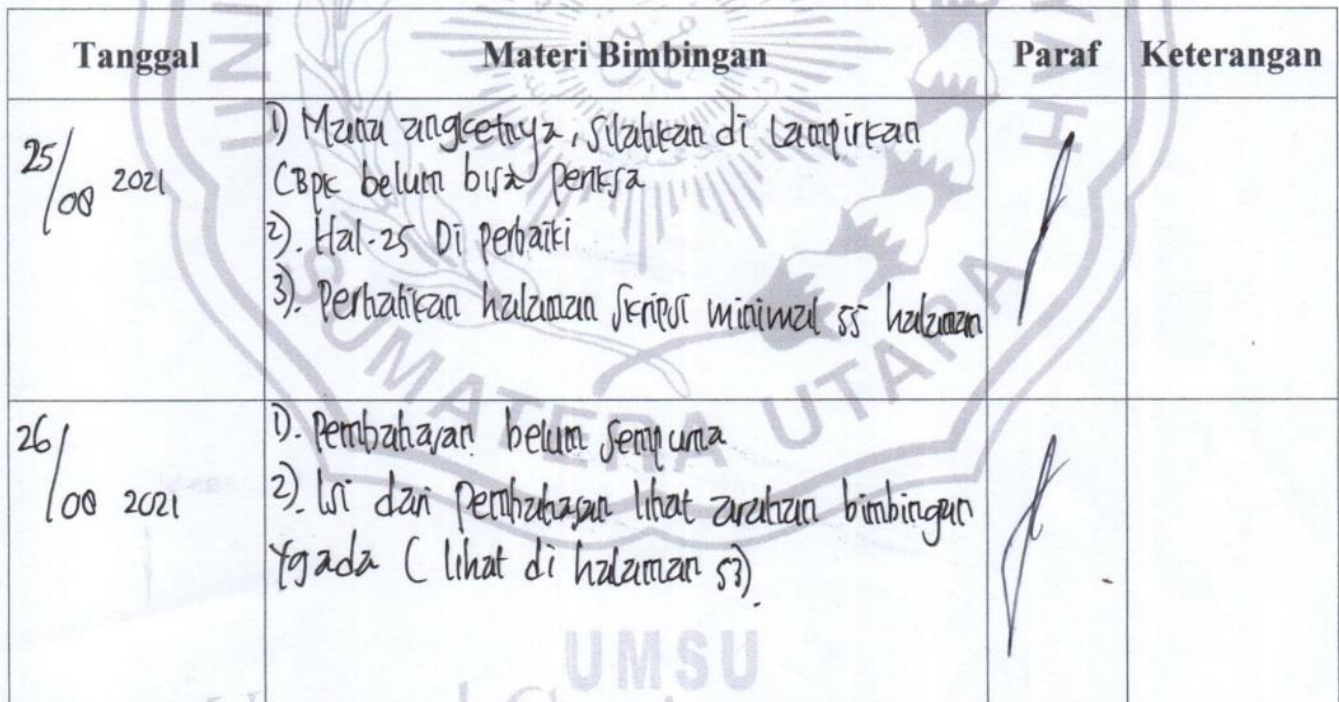 Tanggal Materi Bimbingan Paraf Keterangan
25/08 2021
1) Mana angketnya, silahkan di Lampirkan
CBpk belum bisa periksa
2). Hal-25 Di perbaiki
3). Perhatikan halaman Skripsi minimal 55 halaman
26/08 2021
1). Pembahasan belum Sempurna
2). Isi dari Pembahasan lihat arahan bimbingan
Yg ada ( lihat di halaman 53).
SUMATERA UTARA
UMSU